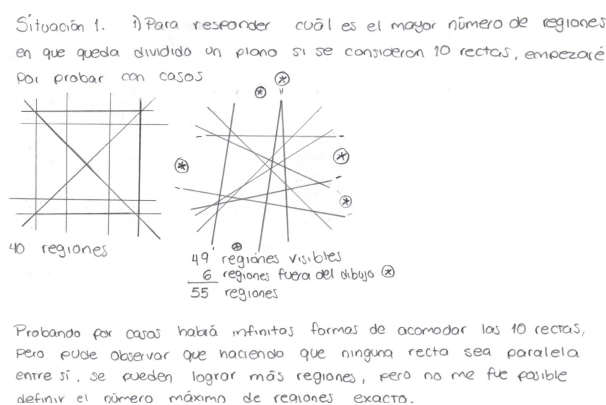 Situación 1. i) Para responder cuál es el mayor número de regiones
en que queda dividido un plano si se consideran 10 rectas, empezaré
por probar con casos
40 regiones
49 regiones visibles
6 regiones fuera del dibujo ⊛
55 regiones
Probando por casos habrá infinitas formas de acomodar las 10 rectas,
pero pude observar que haciendo que ninguna recta sea paralela
entre sí, se pueden lograr más regiones, pero no me fue posible
definir el número máximo de regiones exacto.